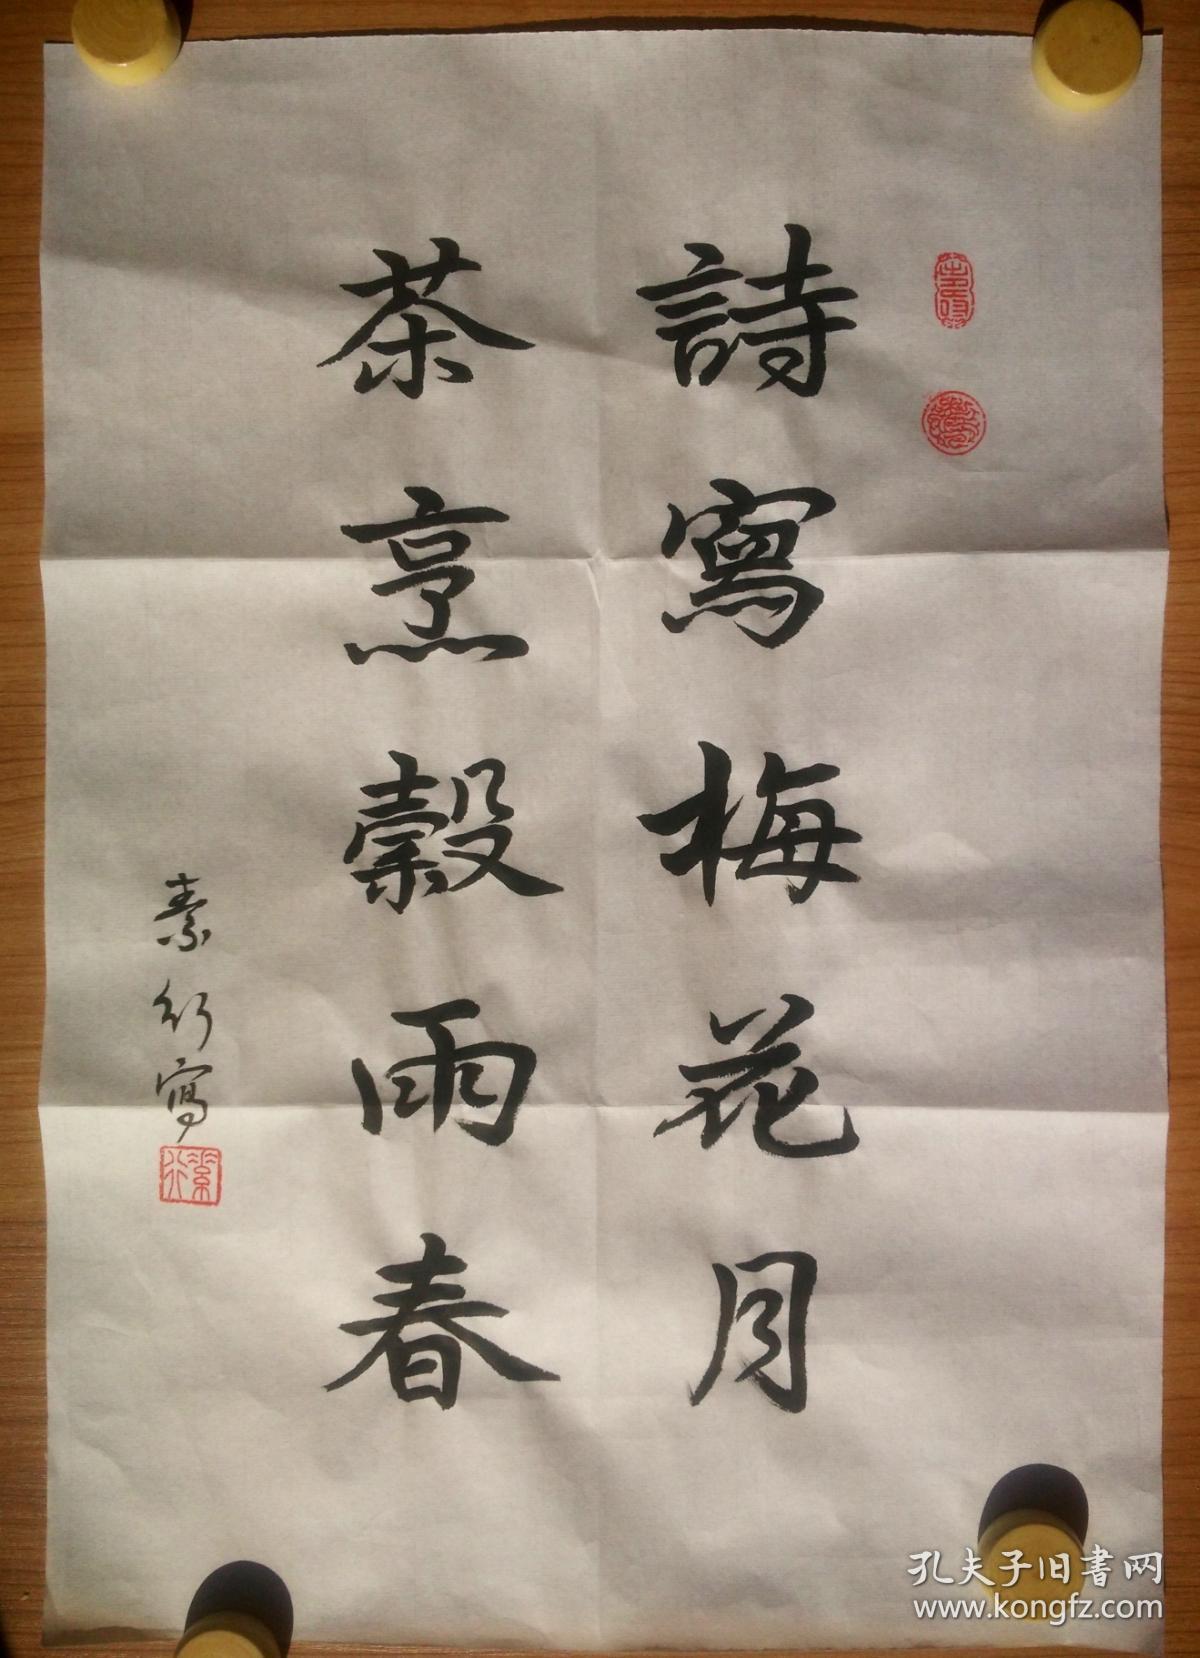 詩寫梅花月
茶烹穀雨春
素行寫
素行
孔夫子旧書网
www.kongfz.com